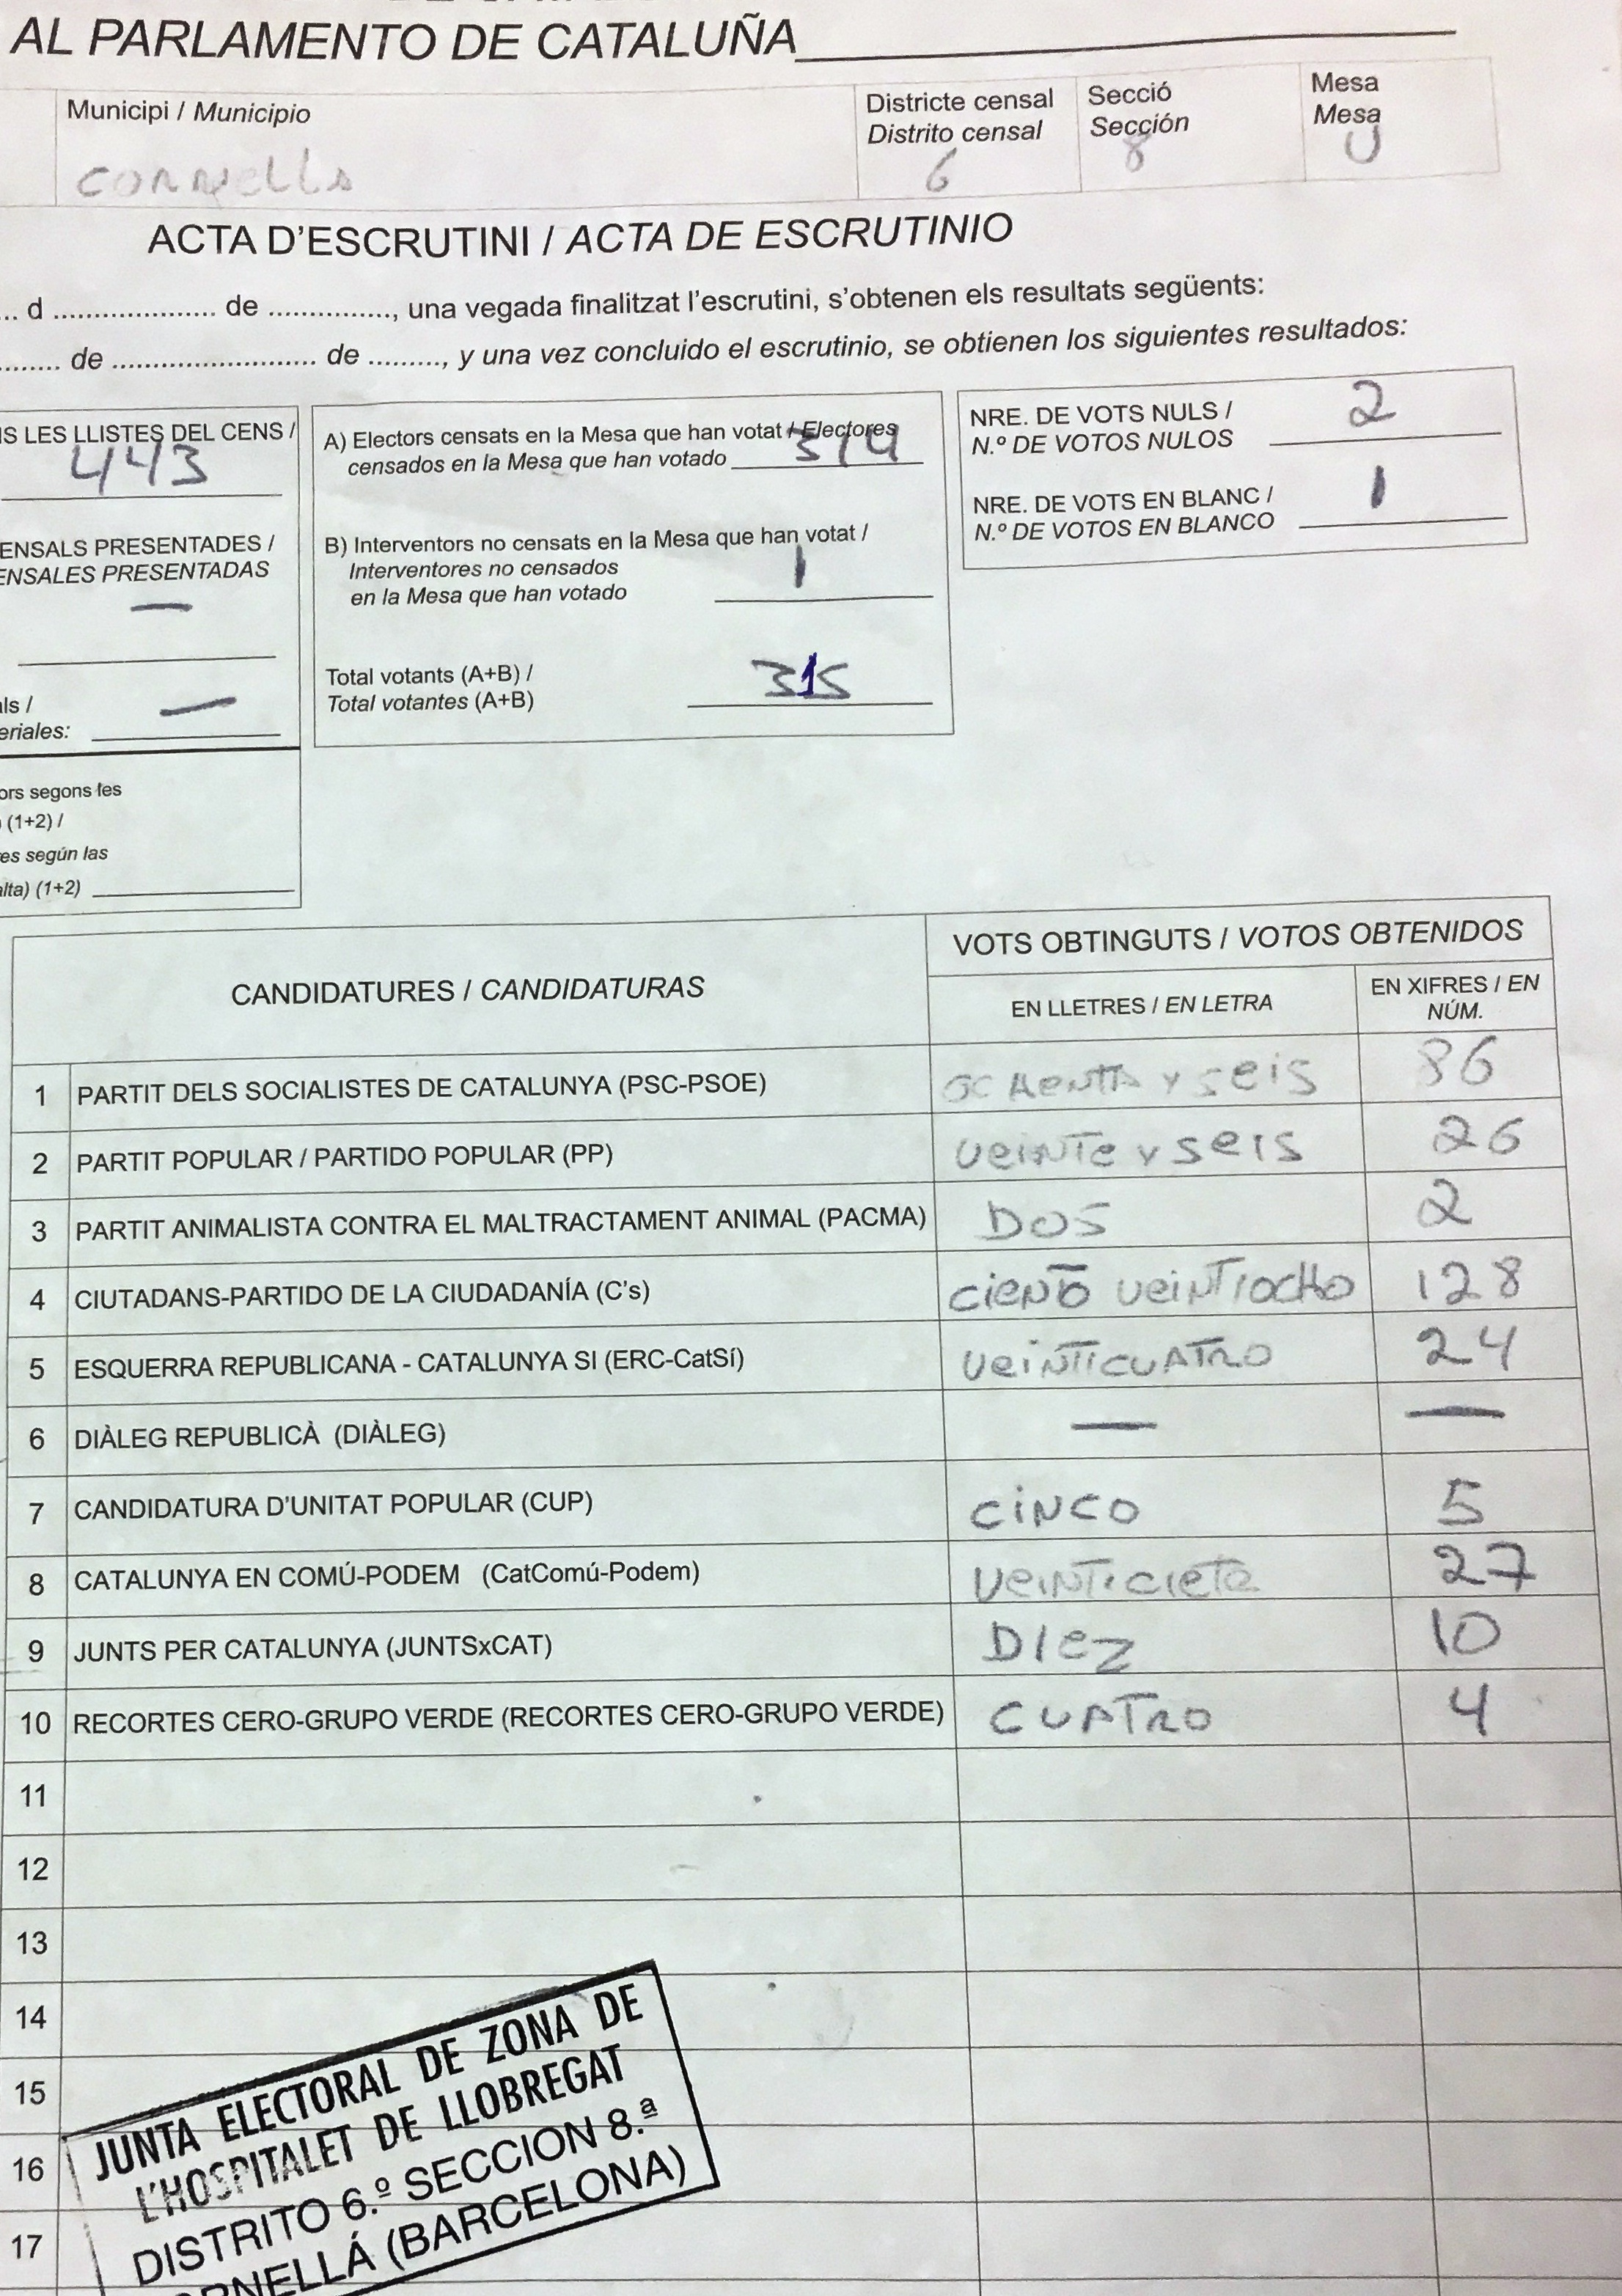 AL PARLAMENTO DE CATALUÑA
Municipi / Municipio
Cornella
Districte censal
Distrito censal
6
Secció
Sección
8
Mesa
Mesa
U
ACTA D'ESCRUTINI / ACTA DE ESCRUTINIO
... d .................... de ..............., una vegada finalitzat l'escrutini, s'obtenen els resultats següents:
........ de ......................... de ........., y una vez concluido el escrutinio, se obtienen los siguientes resultados:
LES LLISTES DEL CENS /
443
ENSALS PRESENTADES /
ENSALES PRESENTADAS
—
als /
eriales:
—
ors segons les
(1+2) /
es según las
alta) (1+2)
A) Electors censats en la Mesa que han votat / Electores
censados en la Mesa que han votado 314
B) Interventors no censats en la Mesa que han votat /
Interventores no censados
en la Mesa que han votado 1
Total votants (A+B) /
Total votantes (A+B) 315
NRE. DE VOTS NULS /
N.º DE VOTOS NULOS 2
NRE. DE VOTS EN BLANC /
N.º DE VOTOS EN BLANCO 1
CANDIDATURES / CANDIDATURAS
VOTS OBTINGUTS / VOTOS OBTENIDOS
EN LLETRES / EN LETRA
EN XIFRES / EN
NÚM.
1 PARTIT DELS SOCIALISTES DE CATALUNYA (PSC-PSOE) OCHENTA Y SEIS 86
2 PARTIT POPULAR / PARTIDO POPULAR (PP) VEINTE Y SEIS 26
3 PARTIT ANIMALISTA CONTRA EL MALTRACTAMENT ANIMAL (PACMA) DOS 2
4 CIUTADANS-PARTIDO DE LA CIUDADANÍA (C's) CIENTO VEINTIOCHO 128
5 ESQUERRA REPUBLICANA - CATALUNYA SI (ERC-CatSí) VEINTICUATRO 24
6 DIÀLEG REPUBLICÀ (DIÀLEG) — —
7 CANDIDATURA D'UNITAT POPULAR (CUP) CINCO 5
8 CATALUNYA EN COMÚ-PODEM (CatComú-Podem) VEINTICIETE 27
9 JUNTS PER CATALUNYA (JUNTSxCAT) DIEZ 10
10 RECORTES CERO-GRUPO VERDE (RECORTES CERO-GRUPO VERDE) CUATRO 4
11
12
13
14
15
16
17
JUNTA ELECTORAL DE ZONA DE
L'HOSPITALET DE LLOBREGAT
DISTRITO 6.º SECCION 8.ª
ORNELLÁ (BARCELONA)